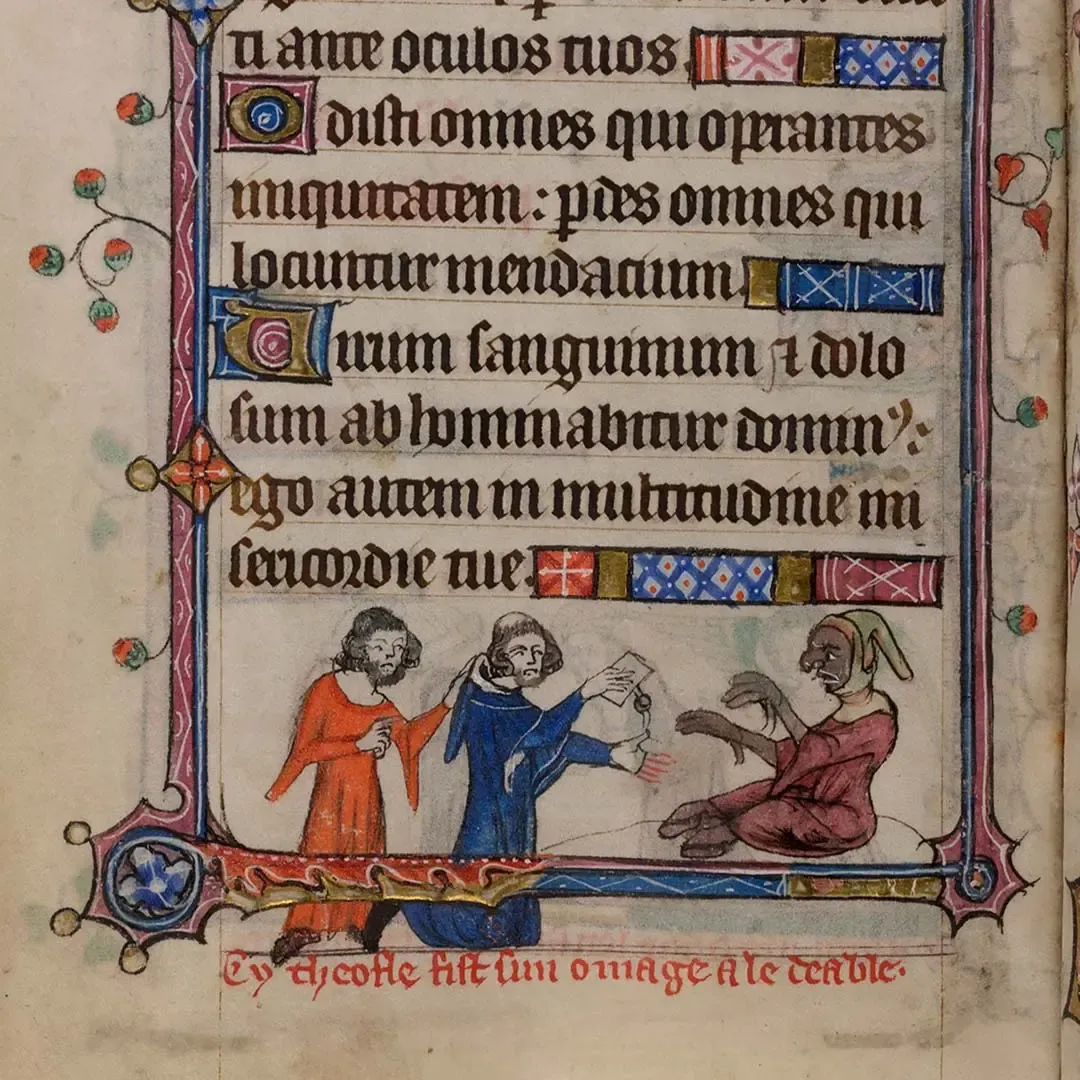 ti ante oculos tuos.
Odisti omnes qui operantes
iniquitatem: pdes omnes qui
locuntur mendacium.
Uirum sanguinum et dolo
sum ab hominabitur domin9:
ego autem in multitudine mi
sericordie tue.
Cy theofle fist sun omage a le deable.